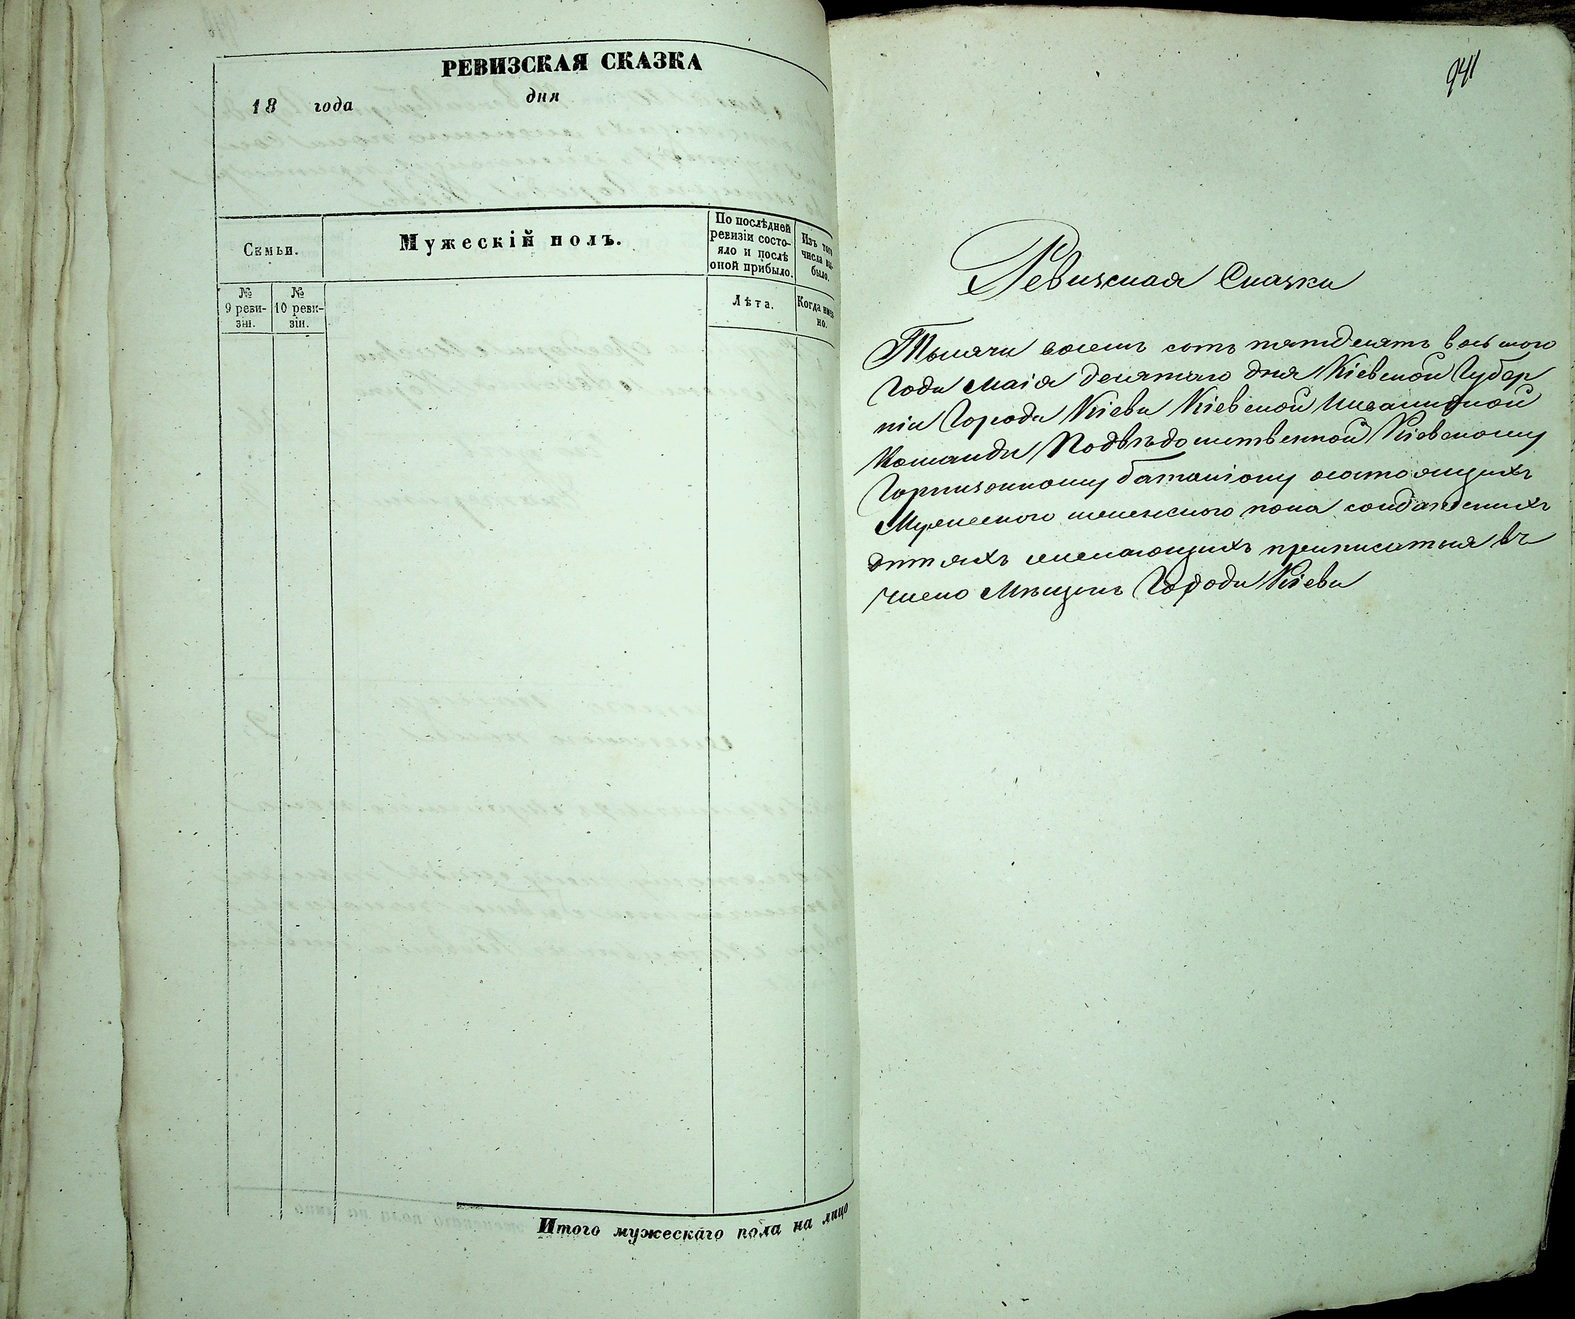 РЕВИЗСКАЯ СКАЗКА
18 года дня
Семьи.
Мужескій полъ.
По послѣдней
ревизіи состо-
яло и послѣ
оной прибыло.
Изъ того
числа вы-
было.
№
9 реви-
зіи.
№
10 реви-
зіи.
Лѣта.
Когда имен-
но.
Итого мужескаго пола на лицо
941
Ревизская Сказка
Тысячи восемь сотъ пятдесятъ восьмого
Года Маія десятаго дня Кіевской Губер
ніи Города Кіева Кіевской Инвалидной
Команды Подвѣдомственной Кіевскому
Гарнизонному баталіону состоящихъ
Мужеского женского пола солдатскихъ
дѣтяхъ желающихъ приписатся въ
число Мѣщанъ Города Кіева